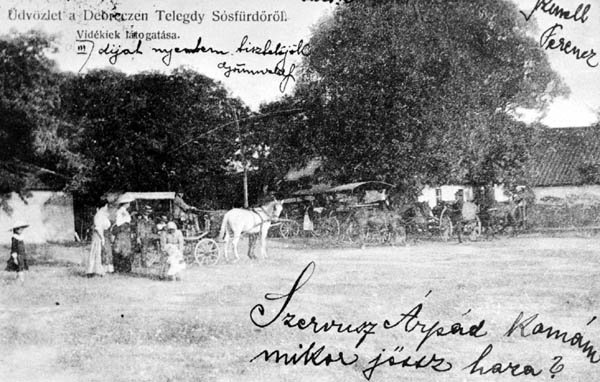 Üdvözlet a Debreczen Telegdy Sósfürdőről.
Vidékiek látogatása.
III díjat nyertem tisztelőjök
Ferencz
Szervusz Árpád Komám
mikor jössz hara?